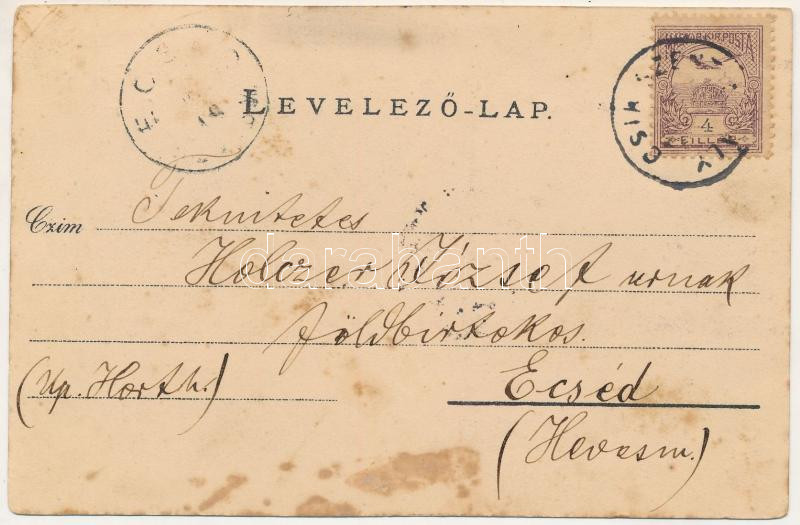 MAGYAR KIR. POSTA
4
FILLÉR
CSIK SZENT
ECSÉD
LEVELEZŐ-LAP.
Czim Tekintetes
Holczer József urnak
földbirtokos.
(Up. Horth.)
Ecséd
(Hevesm.)
darabanth